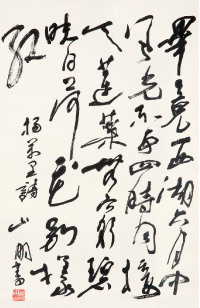 畢竟西湖六月中
風光不與四時同接
天蓮葉無窮碧
映日荷花別樣
紅
楊萬里詩 山朋書